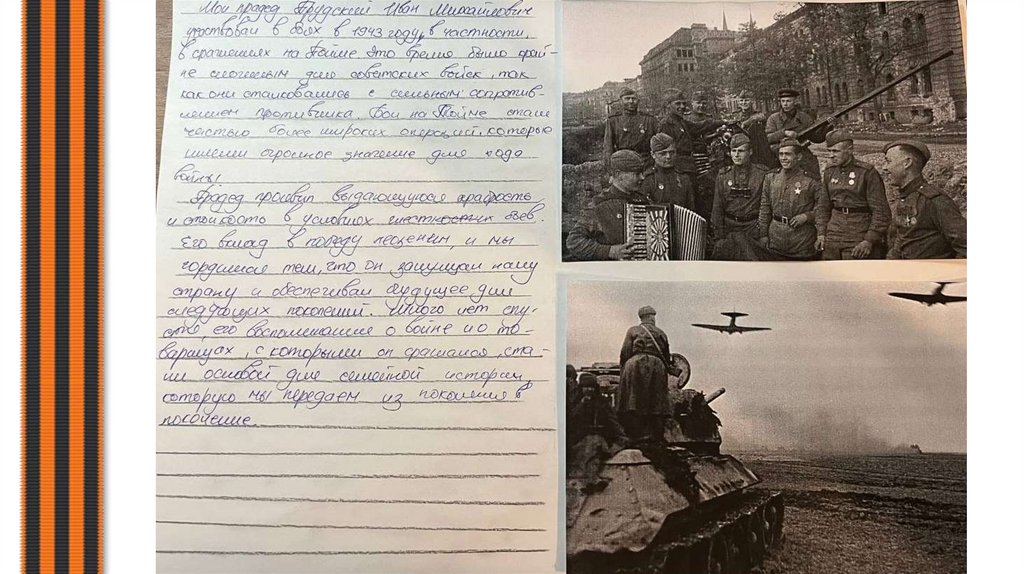 Мой прадед Прудский Иван Михайлович
участвовал в боях в 1943 году, в частности,
в сражениях на Пойме. Это время было край-
не сложным для советских войск, так
как они сталкивались с сильным сопротив-
лением противника. Бои на Пойме стали
частью более широких операций, которые
имели огромное значение для хода
войны
Прадед проявил выдающуюся храбрость
и стойкость в условиях жестоких боев.
Его вклад в победу неоценим, и мы
гордимся тем, что он защищал нашу
страну и обеспечивал будущее для
следующих поколений. Много лет спу-
стя, его воспоминания о войне и о то-
варищах, с которыми он сражался, ста-
ли основой для семейной истории,
которую мы передаем из поколения в
поколение.